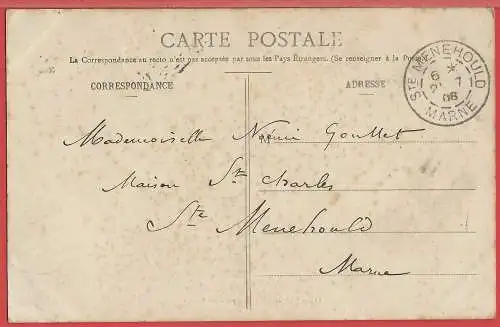 CARTE POSTALE
La Correspondance au recto n'est pas acceptée par tous les Pays Étrangers. (Se renseigner à la Poste)
CORRESPONDANCE
ADRESSE
STE MENEHOULD
6 *
2 - 7
06
MARNE
Mademoiselle Noémi Goullet
M
Maison Ste Charles
Ste Menehould
Marne